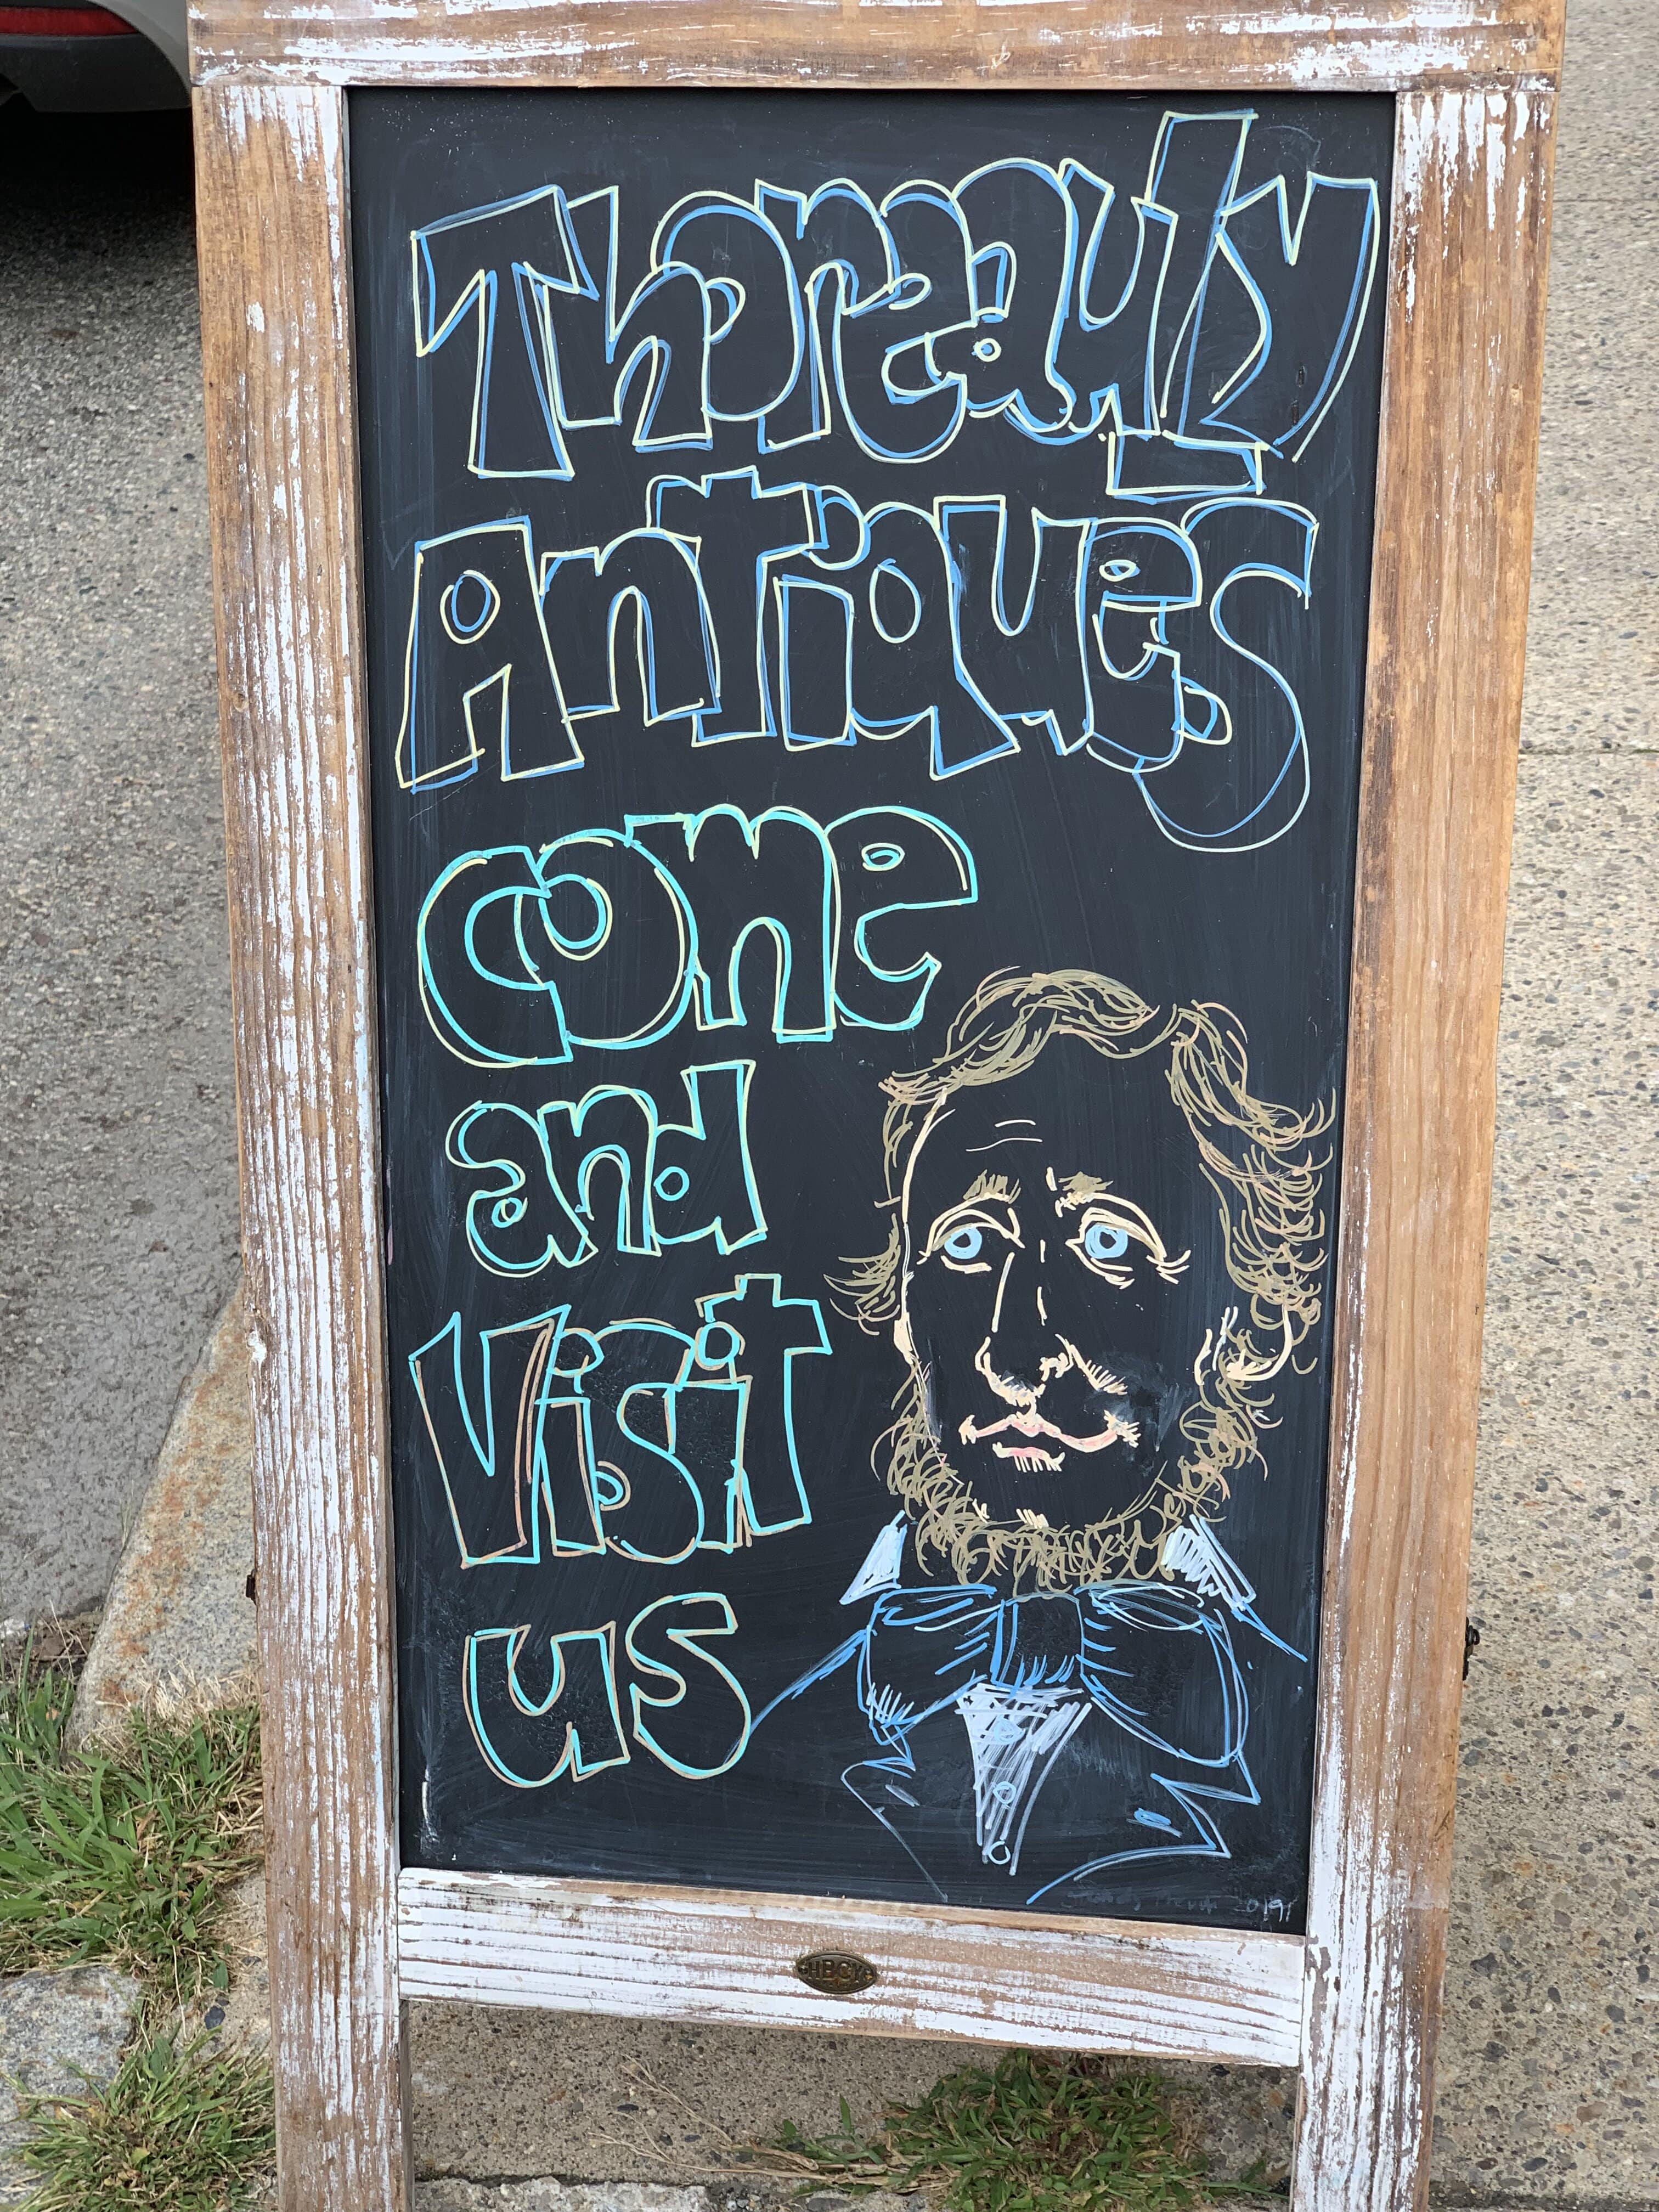 Thoreauly
Antiques
come
and
Visit
us